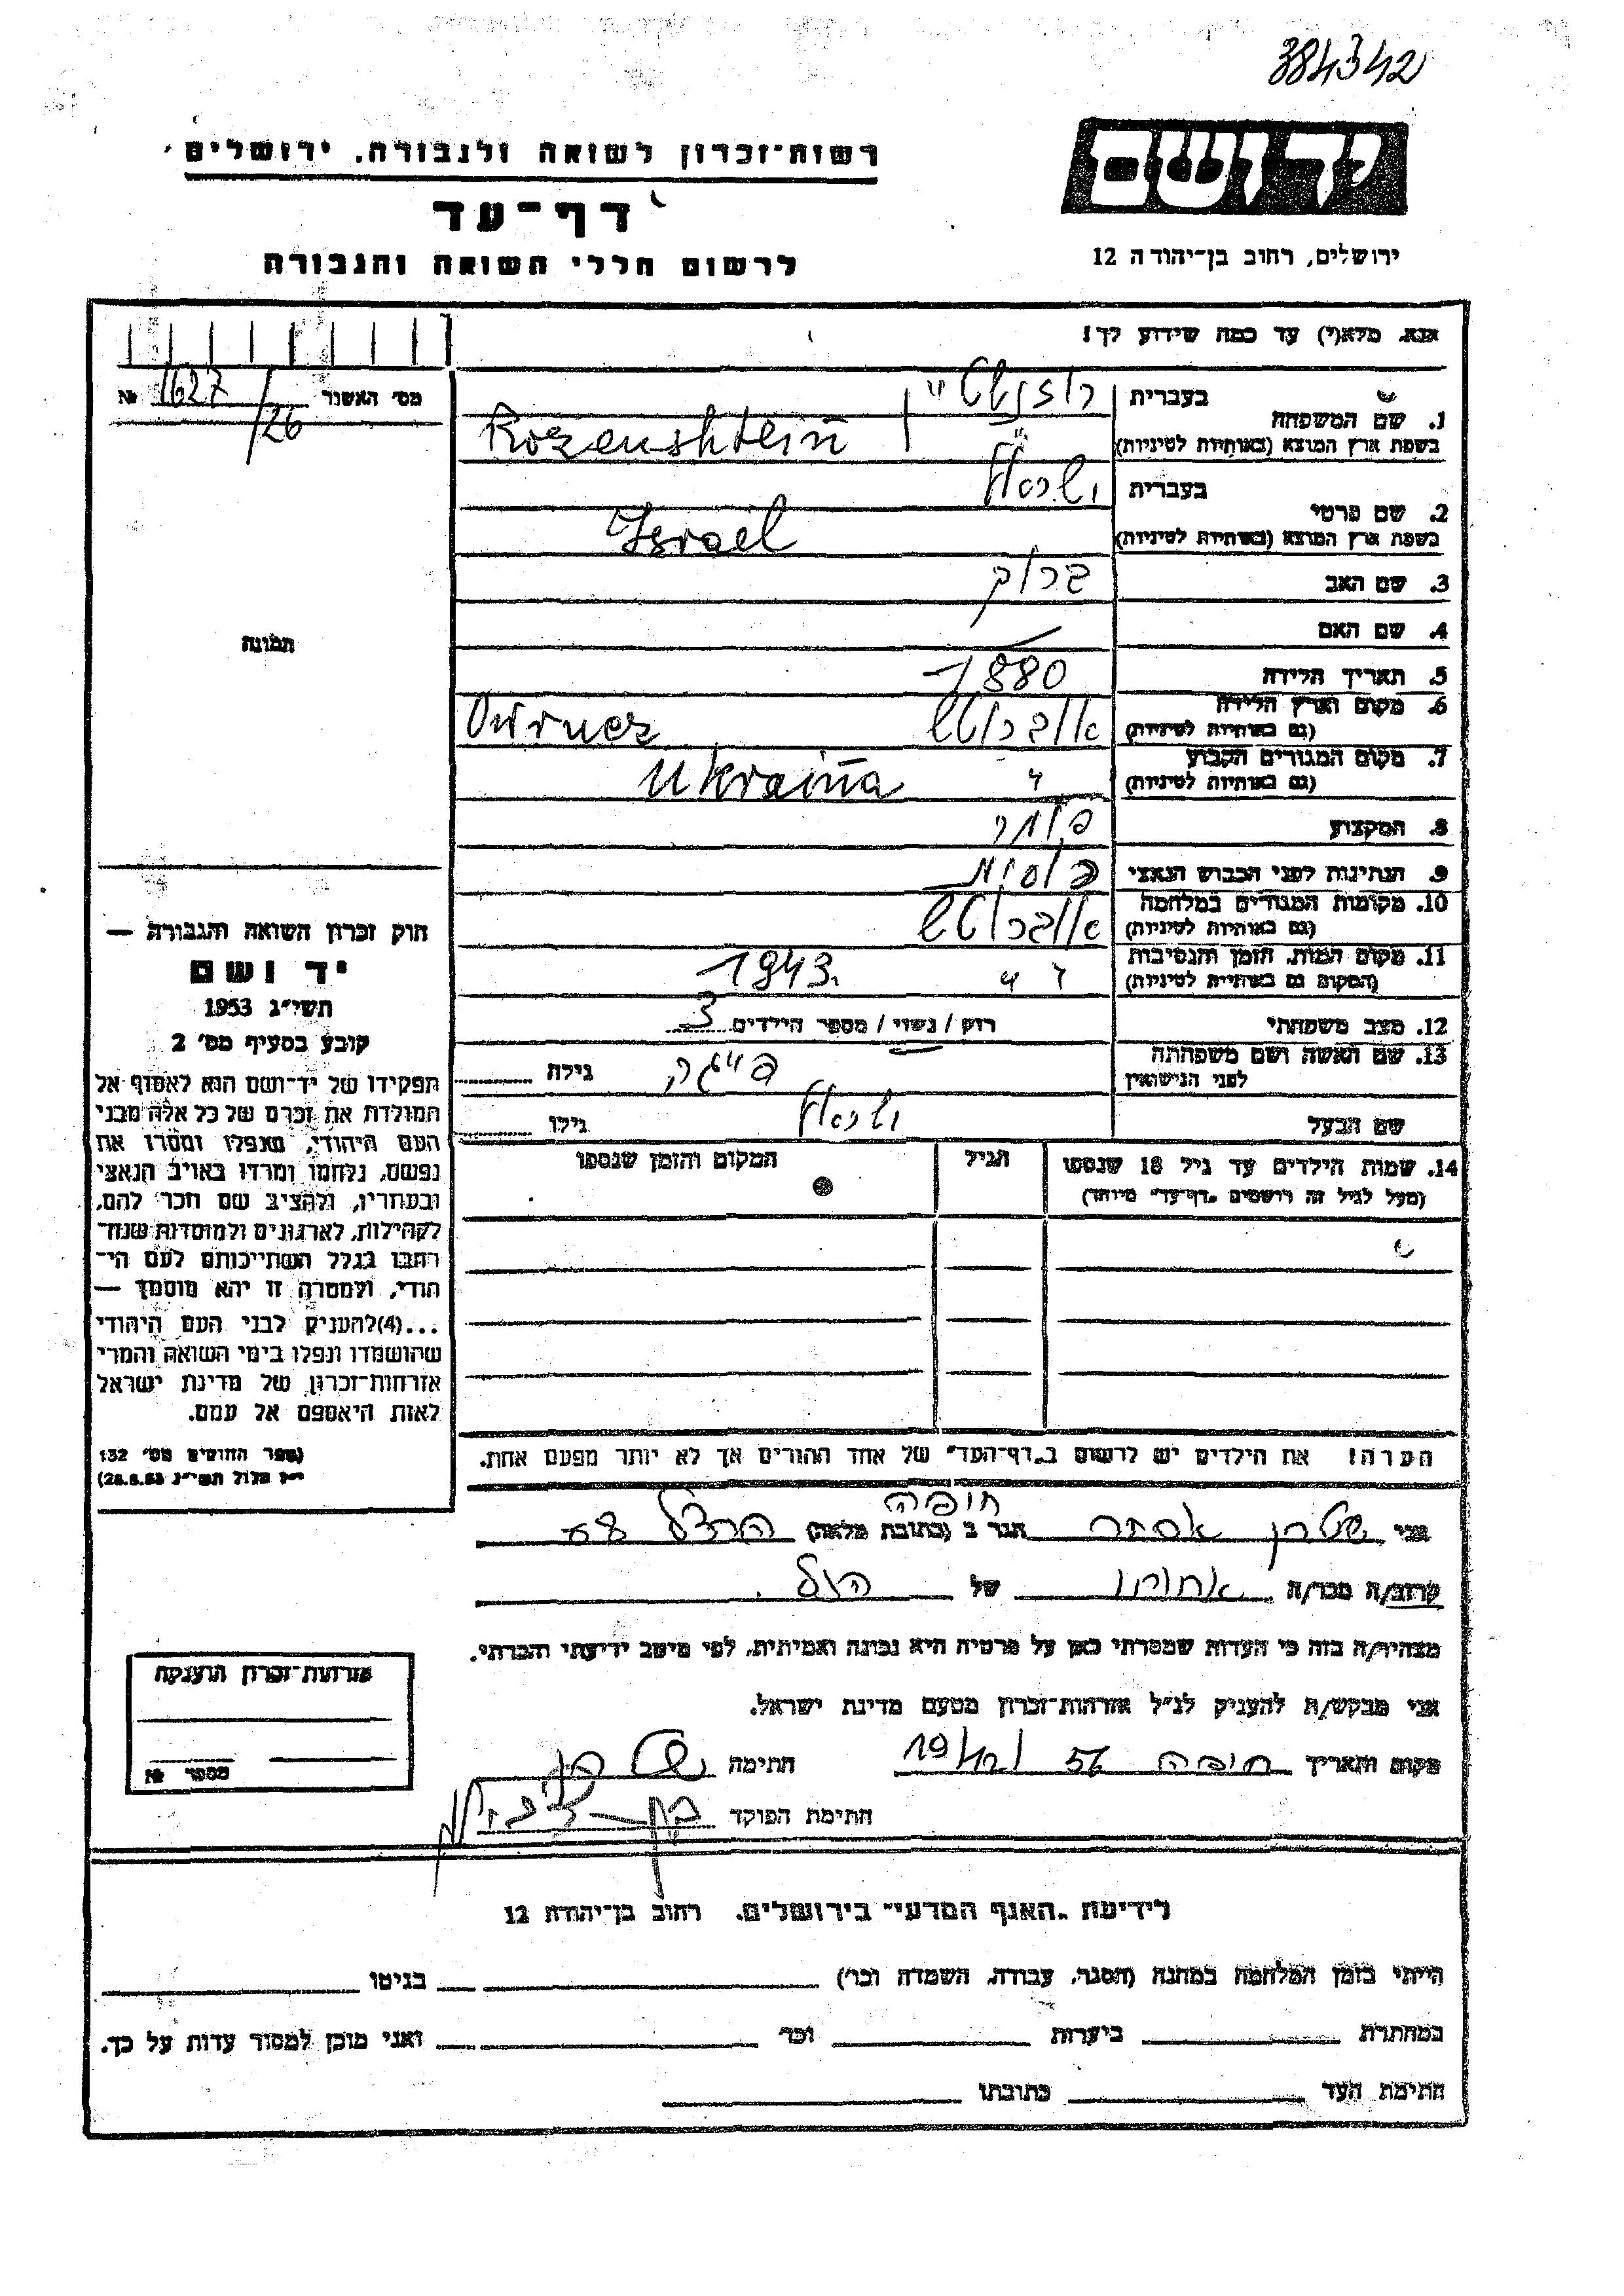 384342
יד ושם
רשות־זכרון לשואה ולגבורה, ירושלים
דף־עד
ירושלים, רחוב בן־יהודה 12
לרשום חללי השואה והגבורה
אנא, מלא(י) עד כמה שידוע לך!
מס׳ האשור 1627/26 №
1. שם המשפחה
בעברית רוזנשטיין
בשפת ארץ המוצא (באותיות לטיניות) Rozenshtein
2. שם פרטי
בעברית ישראל
בשפת ארץ המוצא (באותיות לטיניות) Israel
3. שם האב ברוך
4. שם האם —
5. תאריך הלידה 1880
6. מקום וארץ הלידה
(גם באותיות לטיניות)
7. מקום המגורים הקבוע
(גם באותיות לטיניות) " Ukraina
8. המקצוע סוחר
9. הנתינות לפני הכבוש הנאצי רוסית
10. מקומות המגורים במלחמה
(גם באותיות לטיניות)
11. מקום המות, הזמן והנסיבות
(המקום גם באותיות לטיניות) " " 1943
12. מצב משפחתי רוק / נשוי / מספר הילדים 3
13. שם האשה ושם משפחתה
לפני הנישואין פייגה גילה
שם הבעל ישראל גילו
14. שמות הילדים עד גיל 18 שנספו
(מעל לגיל זה רושמים „דף־עד״ מיוחד)
הגיל
המקום והזמן שנספו
הערה! את הילדים יש לרשום ב„דף־העד״ של אחד ההורים אך לא יותר מפעם אחת.
תמונה
חוק זכרון השואה והגבורה —
יד ושם
תשי״ג 1953
קובע בסעיף מס׳ 2
תפקידו של יד־ושם הוא לאסוף אל
המולדת את זכרם של כל אלה מבני
העם היהודי, שנפלו ומסרו את
נפשם, נלחמו ומרדו באויב הנאצי
ובעוזריו, ולהציב שם וזכר להם,
לקהילות, לארגונים ולמוסדות שנח־
רבו בגלל השתייכותם לעם הי־
הודי, ולמטרה זו יהא מוסמך —
...(4) להעניק לבני העם היהודי
שהושמדו ונפלו בימי השואה והמרי
אזרחות־זכרון של מדינת ישראל
לאות היאספם אל עמם.
(ספר החוקים מס׳ 132
י״ז אלול תשי״ג 28.8.53)
אני שטרן אסתר הגר ב (כתובת מלאה) חיפה הרצל 58
קרוב/ה מכר/ה אחותו של הנ״ל.
מצהיר/ה בזה כי העדות שמסרתי כאן על פרטיה היא נכונה ואמיתית, לפי מיטב ידיעתי והכרתי.
אני מבקש/ת להעניק לנ״ל אזרחות־זכרון מטעם מדינת ישראל.
מקום ותאריך חיפה חתימה
חתימת הפוקד
אזרחות־זכרון הוענקה
מספר №
לידיעת „האגף המדעי״ בירושלים, רחוב בן־יהודה 12
הייתי בזמן המלחמה במחנה (הסגר, עבודה, השמדה וכו׳) בגיטו
במחתרת ביערות וכו׳ ואני מוכן למסור עדות על כך.
חתימת העד כתובתו